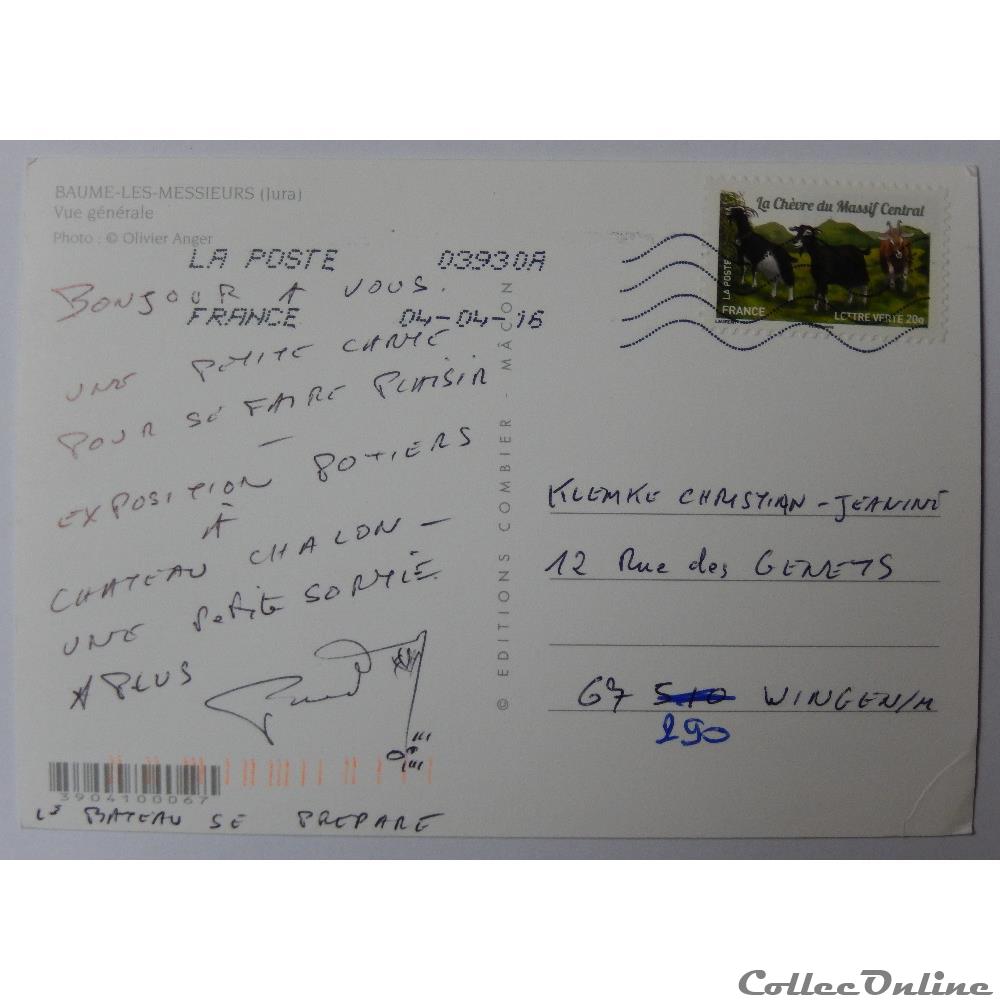 BAUME-LES-MESSIEURS (Jura)
Vue générale
Photo : © Olivier Anger
LA POSTE 03930A
FRANCE 04-04-16
BONJOUR A VOUS.
UNE PETITE CARTE
POUR SE FAIRE PLAISIR
—
EXPOSITION POTIERS
À
CHATEAU CHALON —
UNE PETITE SORTIE.
A PLUS
39041000067
LE BATEAU SE PREPARE
© EDITIONS COMBIER - MÂCON
La Chèvre du Massif Central
LA POSTE
FRANCE
LETTRE VERTE 20g
KLEMKE CHRISTIAN - JEANINE
12 Rue des GENETS
67 510 WINGEN/M
290
CollecOnline